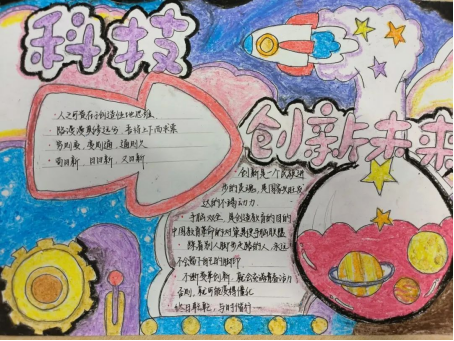 科技
创新未来
·人之可贵在于创造性地思维
·路漫漫其修远兮，吾将上下而求索
·穷则变，变则通，通则久
·苟日新，日日新，又日新
·创新是一个民族进
步的灵魂，是国家兴旺发
达的不竭动力．
·手脑双全，是创造教育的目的
中国教育革命的对策是使手脑联盟
·踩着别人脚步走路的人，永远
不会留下自己的脚印
·不断变革创新，就会充满青春活力
否则，就可能变得僵化
·终日乾乾，与时偕行